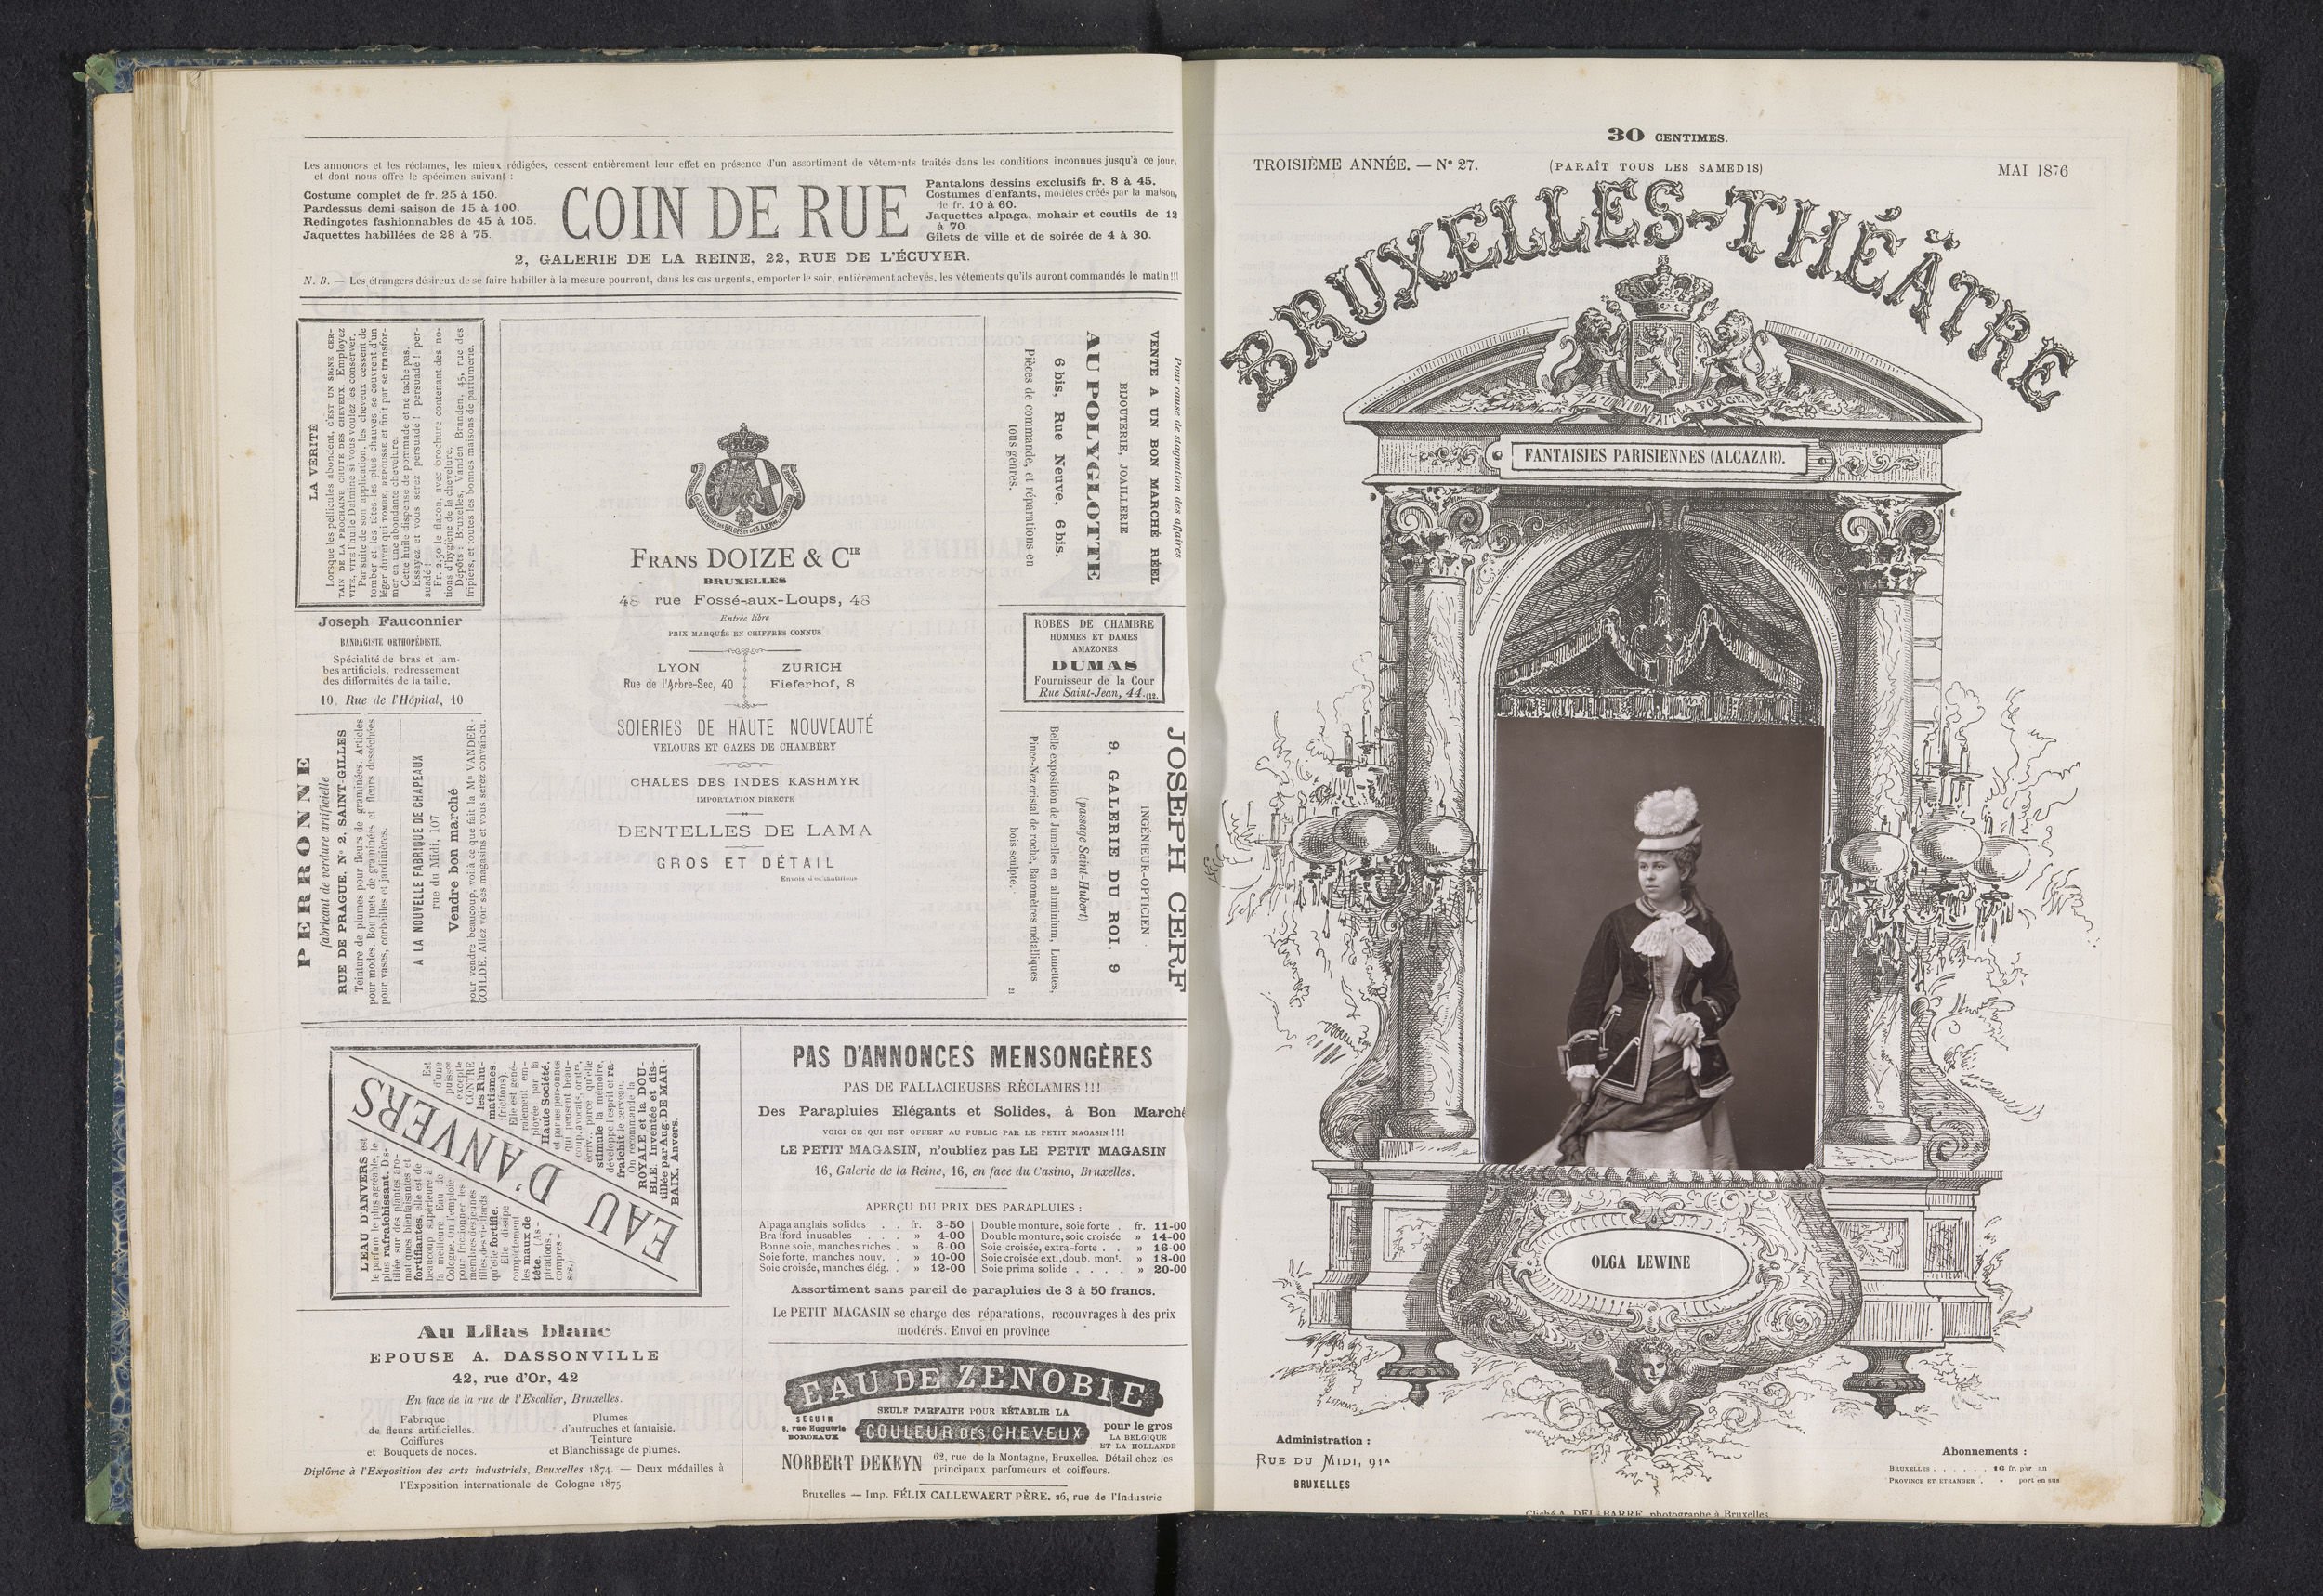 Les annonces et les réclames, les mieux rédigées, cessent entièrement leur effet en présence d'un assortiment de vêtements traités dans les conditions inconnues jusqu'à ce jour,
et dont nous offre le spécimen suivant :
Costume complet de fr. 25 à 150.
Pardessus demi saison de 15 à 100.
Redingotes fashionnables de 45 à 105.
Jaquettes habillées de 28 à 75.
COIN DE RUE
Pantalons dessins exclusifs fr. 8 à 45.
Costumes d'enfants, modèles créés par la maison,
de fr. 10 à 60.
Jaquettes alpaga, mohair et coutils de 12
à 70.
Gilets de ville et de soirée de 4 à 30.
2, GALERIE DE LA REINE, 22, RUE DE L'ÉCUYER.
N. B. — Les étrangers désireux de se faire habiller à la mesure pourront, dans les cas urgents, emporter le soir, entièrement achevés, les vêtements qu'ils auront commandés le matin!!!
LA VÉRITÉ
Lorsque les pellicules abondent, c'EST UN SIGNE CER-
TAIN DE LA PROCHAINE CHUTE DES CHEVEUX. Employez
VITE, VITE l'huile Dalmine si vous voulez les conserver.
Par suite de son application, les cheveux cessent de
tomber et les têtes les plus chauves se couvrent d'un
léger duvet qui TOMBE, REPOUSSE et finit par se transfor-
mer en une abondante chevelure.
Cette huile dispense de pommade et ne tache pas.
Essayez et vous serez persuadé ! persuadé ! per-
suadé !
Fr. 2,50 le flacon, avec brochure contenant des no-
tions d'hygiène de la chevelure.
Dépôts : Bruxelles, Vanden Branden, 45, rue des
fripiers, et toutes les bonnes maisons de parfumerie.
Joseph Fauconnier
BANDAGISTE ORTHOPÉDISTE.
Spécialité de bras et jam-
bes artificiels, redressement
des difformités de la taille.
10, Rue de l'Hôpital, 10
PERRONNE
fabricant de verdure artificielle
RUE DE PRAGUE, N° 2, SAINT-GILLES
Teinture de plumes pour fleurs de graminées. Articles
pour modes. Bouquets de graminées et fleurs desséchées
pour vases, corbeilles et jardinières.
A LA NOUVELLE FABRIQUE DE CHAPEAUX
rue du Midi, 107
Vendre bon marché
pour vendre beaucoup, voilà ce que fait la Mon VANDER-
COILDE. Allez voir ses magasins et vous serez convaincu.
FRANS DOIZE & CIE
BRUXELLES
48 rue Fossé-aux-Loups, 48
Entrée libre
PRIX MARQUÉS EN CHIFFRES CONNUS
LYON
Rue de l'Arbre-Sec, 40
ZURICH
Fieferhof, 8
SOIERIES DE HAUTE NOUVEAUTÉ
VELOURS ET GAZES DE CHAMBÉRY
CHALES DES INDES KASHMYR
IMPORTATION DIRECTE
DENTELLES DE LAMA
GROS ET DÉTAIL
Envois d'échantillons
Pour cause de stagnation des affaires
VENTE A UN BON MARCHÉ RÉEL
BIJOUTERIE, JOAILLERIE
AU POLYGLOTTE
6 bis, Rue Neuve, 6 bis.
Pièces de commande, et réparations en
tous genres.
ROBES DE CHAMBRE
HOMMES ET DAMES
AMAZONES
DUMAS
Fournisseur de la Cour
Rue Saint-Jean, 44. (12.
JOSEPH CERF
INGÉNIEUR-OPTICIEN
9, GALERIE DU ROI, 9
(passage Saint-Hubert)
Belle exposition de Jumelles en aluminium, Lunettes,
Pince-Nez cristal de roche, Baromètres métalliques
bois sculpté.
21
EAU D'ANVERS
L'EAU D'ANVERS est
le parfum le plus agréable, le
plus rafraîchissant. Dis-
tillée sur des plantes aro-
matiques bienfaisantes et
fortifiantes, elle est de
beaucoup supérieure à
la meilleure Eau de
Cologne. On l'emploie
pour frictionner les
membres des jeunes
filles, des vieillards
qu'elle fortifie.
Elle dissipe
complètement
les maux de
tête. (As-
pirations,
compres-
ses.)
Est
d'une
puissance
excepte
CONTRE
les Rhu-
matismes
(frictions).
Elle est géné-
ralement em-
ployée par la
Haute Société,
et par les personnes
qui pensent beau-
coup, avocats, orat.rs,
écriv., parce qu'elle
stimule la mémoire,
développe l'esprit et ra-
fraîchit le cerveau.
On recommande la
ROYALE et la DOU-
BLE. Inventée et dis-
tillée par Aug. DE MAR-
BAIX. Anvers.
PAS D'ANNONCES MENSONGÈRES
PAS DE FALLACIEUSES RÉCLAMES !!!
Des Parapluies Elégants et Solides, à Bon Marché
VOICI CE QUI EST OFFERT AU PUBLIC PAR LE PETIT MAGASIN !!!
LE PETIT MAGASIN, n'oubliez pas LE PETIT MAGASIN
16, Galerie de la Reine, 16, en face du Casino, Bruxelles.
APERÇU DU PRIX DES PARAPLUIES :
Alpaga anglais solides . . fr. 3-50
Bra lford inusables . . . » 4-00
Bonne soie, manches riches . » 6-00
Soie forte, manches nouv. . » 10-00
Soie croisée, manches élég. . » 12-00
Double monture, soie forte . fr. 11-00
Double monture, soie croisée » 14-00
Soie croisée, extra-forte . . » 16-00
Soie croisée ext., doub. mont. » 18-00
Soie prima solide . . . . » 20-00
Assortiment sans pareil de parapluies de 3 à 50 francs.
Le PETIT MAGASIN se charge des réparations, recouvrages à des prix
modérés. Envoi en province
Au Lilas blanc
EPOUSE A. DASSONVILLE
42, rue d'Or, 42
En face de la rue de l'Escalier, Bruxelles.
Fabrique
de fleurs artificielles.
Coiffures
et Bouquets de noces.
Plumes
d'autruches et fantaisie.
Teinture
et Blanchissage de plumes.
Diplôme à l'Exposition des arts industriels, Bruxelles 1874. — Deux médailles à
l'Exposition internationale de Cologne 1875.
EAU DE ZENOBIE
SEULE PARFAITE POUR RÉTABLIR LA
COULEUR DES CHEVEUX
SEGUIN
3, rue Huguerie
BORDEAUX
pour le gros
LA BELGIQUE
ET LA HOLLANDE
NORBERT DEKEYN
62, rue de la Montagne, Bruxelles. Détail chez les
principaux parfumeurs et coiffeurs.
Bruxelles — Imp. FÉLIX CALLEWAERT PÈRE, 26, rue de l'Industrie
30 CENTIMES.
TROISIÈME ANNÉE. — N° 27.
(PARAÎT TOUS LES SAMEDIS)
MAI 1876
BRUXELLES-THÉÂTRE
L'UNION FAIT LA FORCE
FANTAISIES PARISIENNES (ALCAZAR).
OLGA LEWINE
Administration :
RUE DU MIDI, 91A
BRUXELLES
Abonnements :
BRUXELLES . . . . . . 16 fr. par an
PROVINCE ET ETRANGER . » port en sus
Cliché A. DELABARRE, photographe à Bruxelles